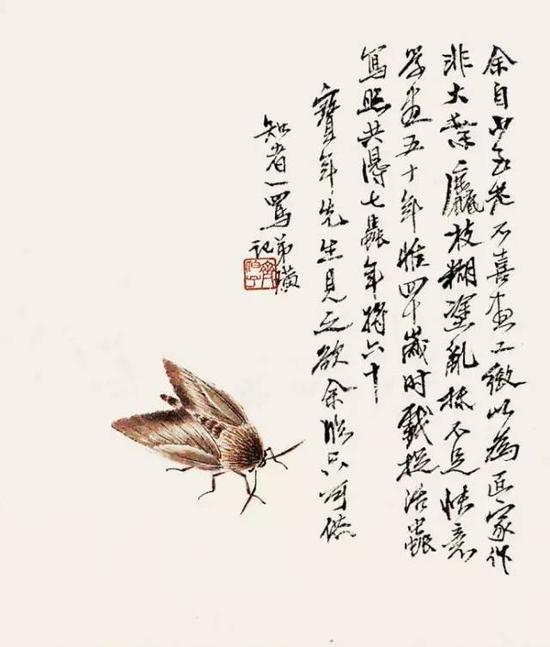 余自少至老不喜画工致以为匠家作
非大叶粗枝糊涂乱抹不足快意
学画五十年惟四十岁时戏捉活虫
写照共得七虫年将六十
宝年先生见之欲余临只可供
知者一骂弟璜
记